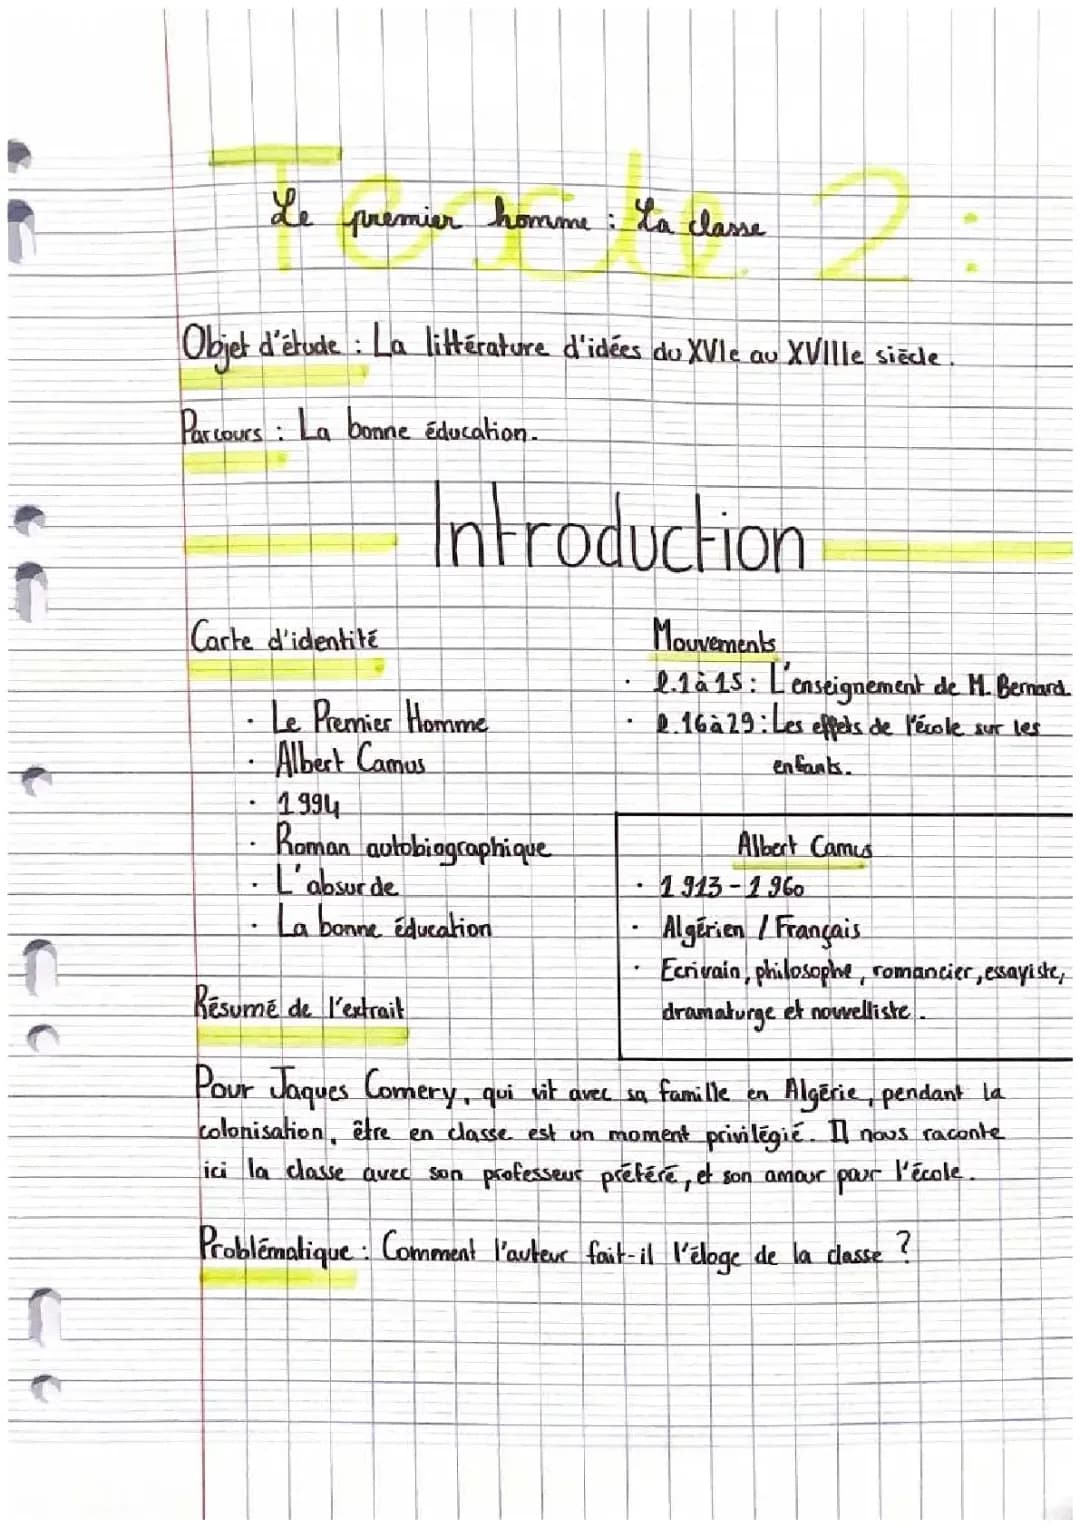 Texte 2 :
Le premier homme : La classe
Objet d'étude : La littérature d'idées du XVIe au XVIIIe siècle.
Parcours : La bonne éducation.
Introduction
Carte d'identité
· Le Premier Homme
· Albert Camus
· 1994
· Roman autobiographique
· L'absurde
· La bonne éducation
Mouvements
· l.1 à 15 : L'enseignement de M. Bernard.
· l.16 à 29 : Les effets de l'école sur les
enfants.
Albert Camus
· 1913-1960
· Algérien / Français
· Ecrivain, philosophe, romancier, essayiste,
dramaturge et nouvelliste.
Résumé de l'extrait
Pour Jaques Comery, qui vit avec sa famille en Algérie, pendant la
colonisation, être en classe est un moment privilégié. Il nous raconte
ici la classe avec son professeur préféré, et son amour pour l'école.
Problématique : Comment l'auteur fait-il l'éloge de la classe ?